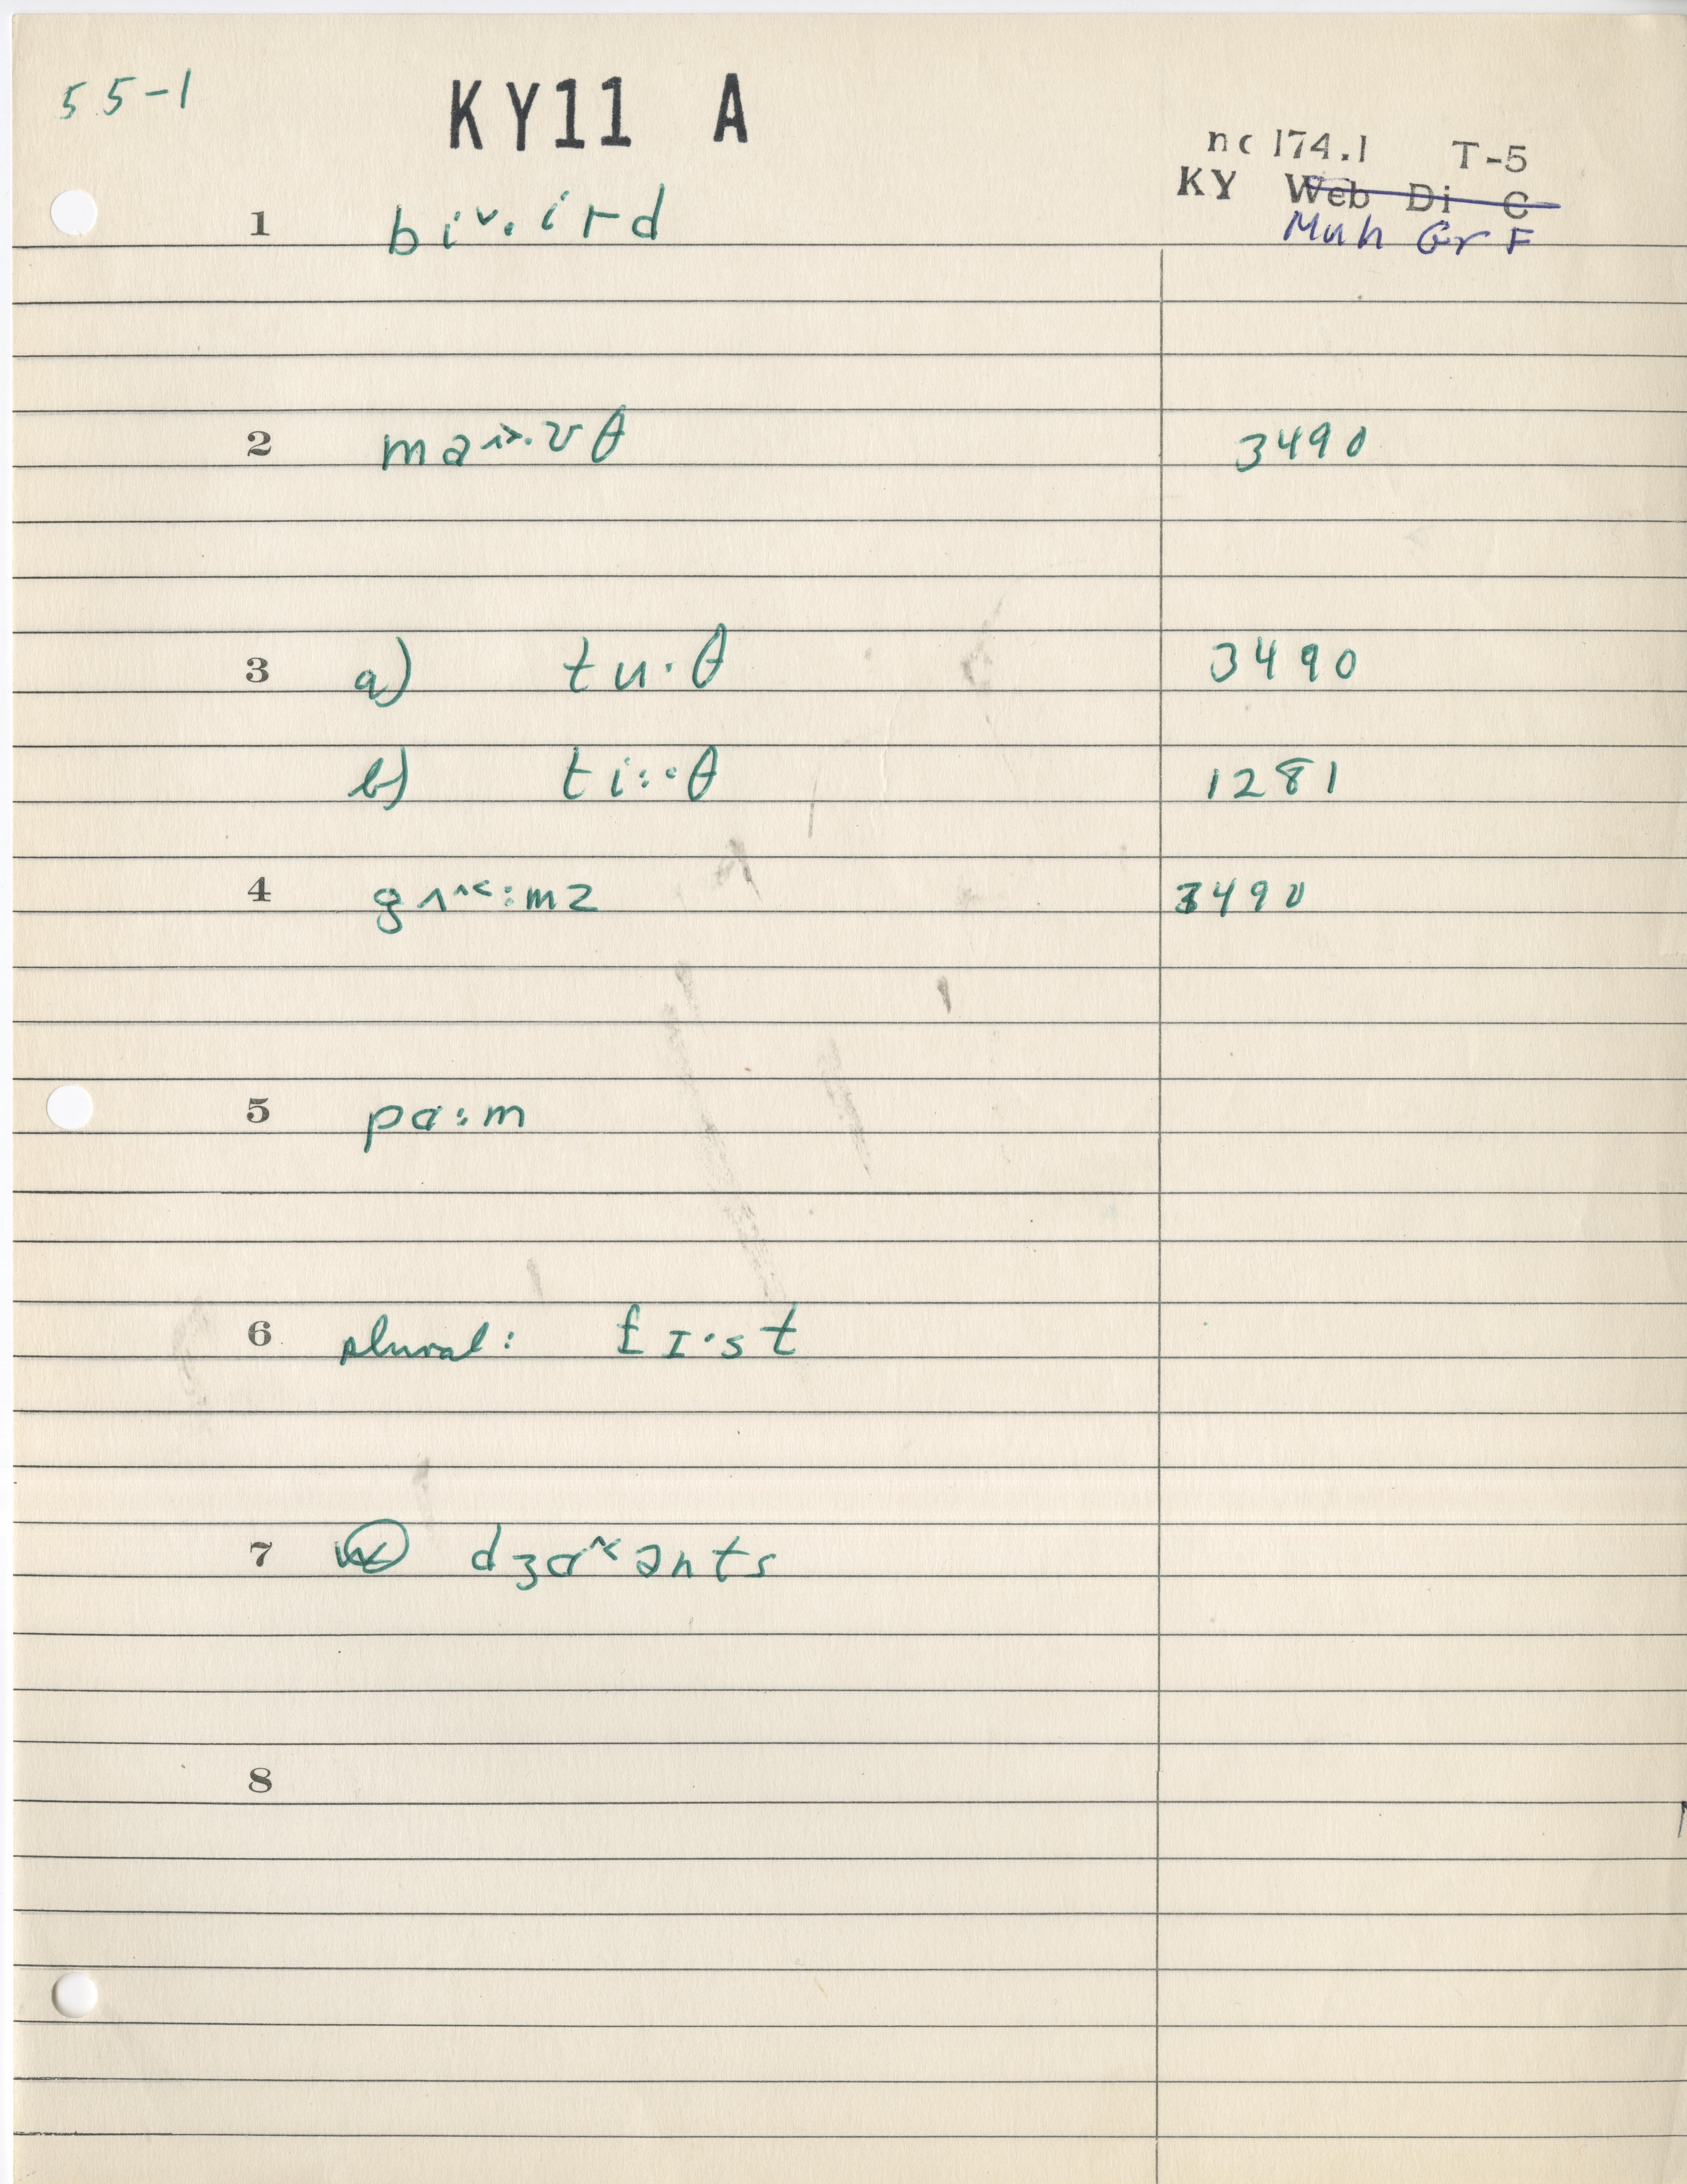 55-1
KY11 A
nc 174.1 T-5
KY Web Di C
Muh Gr F
1 biˇ.ird
2 3490
3 a) tu·θ 3490
b) ti:·θ 1281
4 3490
5 pɑ:m
6 plural: fɪ·st
7 W dʒɑ^<ənts
8